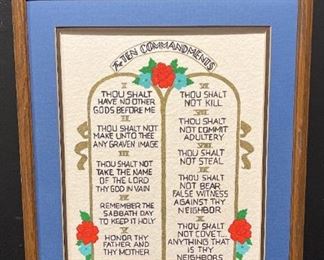 The TEN COMMANDMENTS
I
THOU SHALT
HAVE NO OTHER
GODS BEFORE ME
II
THOU SHALT NOT
MAKE UNTO THEE
ANY GRAVEN IMAGE
III
THOU SHALT NOT
TAKE THE NAME
OF THE LORD
THY GOD IN VAIN
IV
REMEMBER THE
SABBATH DAY
TO KEEP IT HOLY
V
HONOR THY
FATHER AND
THY MOTHER
VI
THOU SHALT
NOT KILL
VII
THOU SHALT
NOT COMMIT
ADULTERY
VIII
THOU SHALT
NOT STEAL
IX
THOU SHALT
NOT BEAR
FALSE WITNESS
AGAINST THY
NEIGHBOR
X
THOU SHALT
NOT COVET....
ANYTHING THAT
IS THY
NEIGHBORS